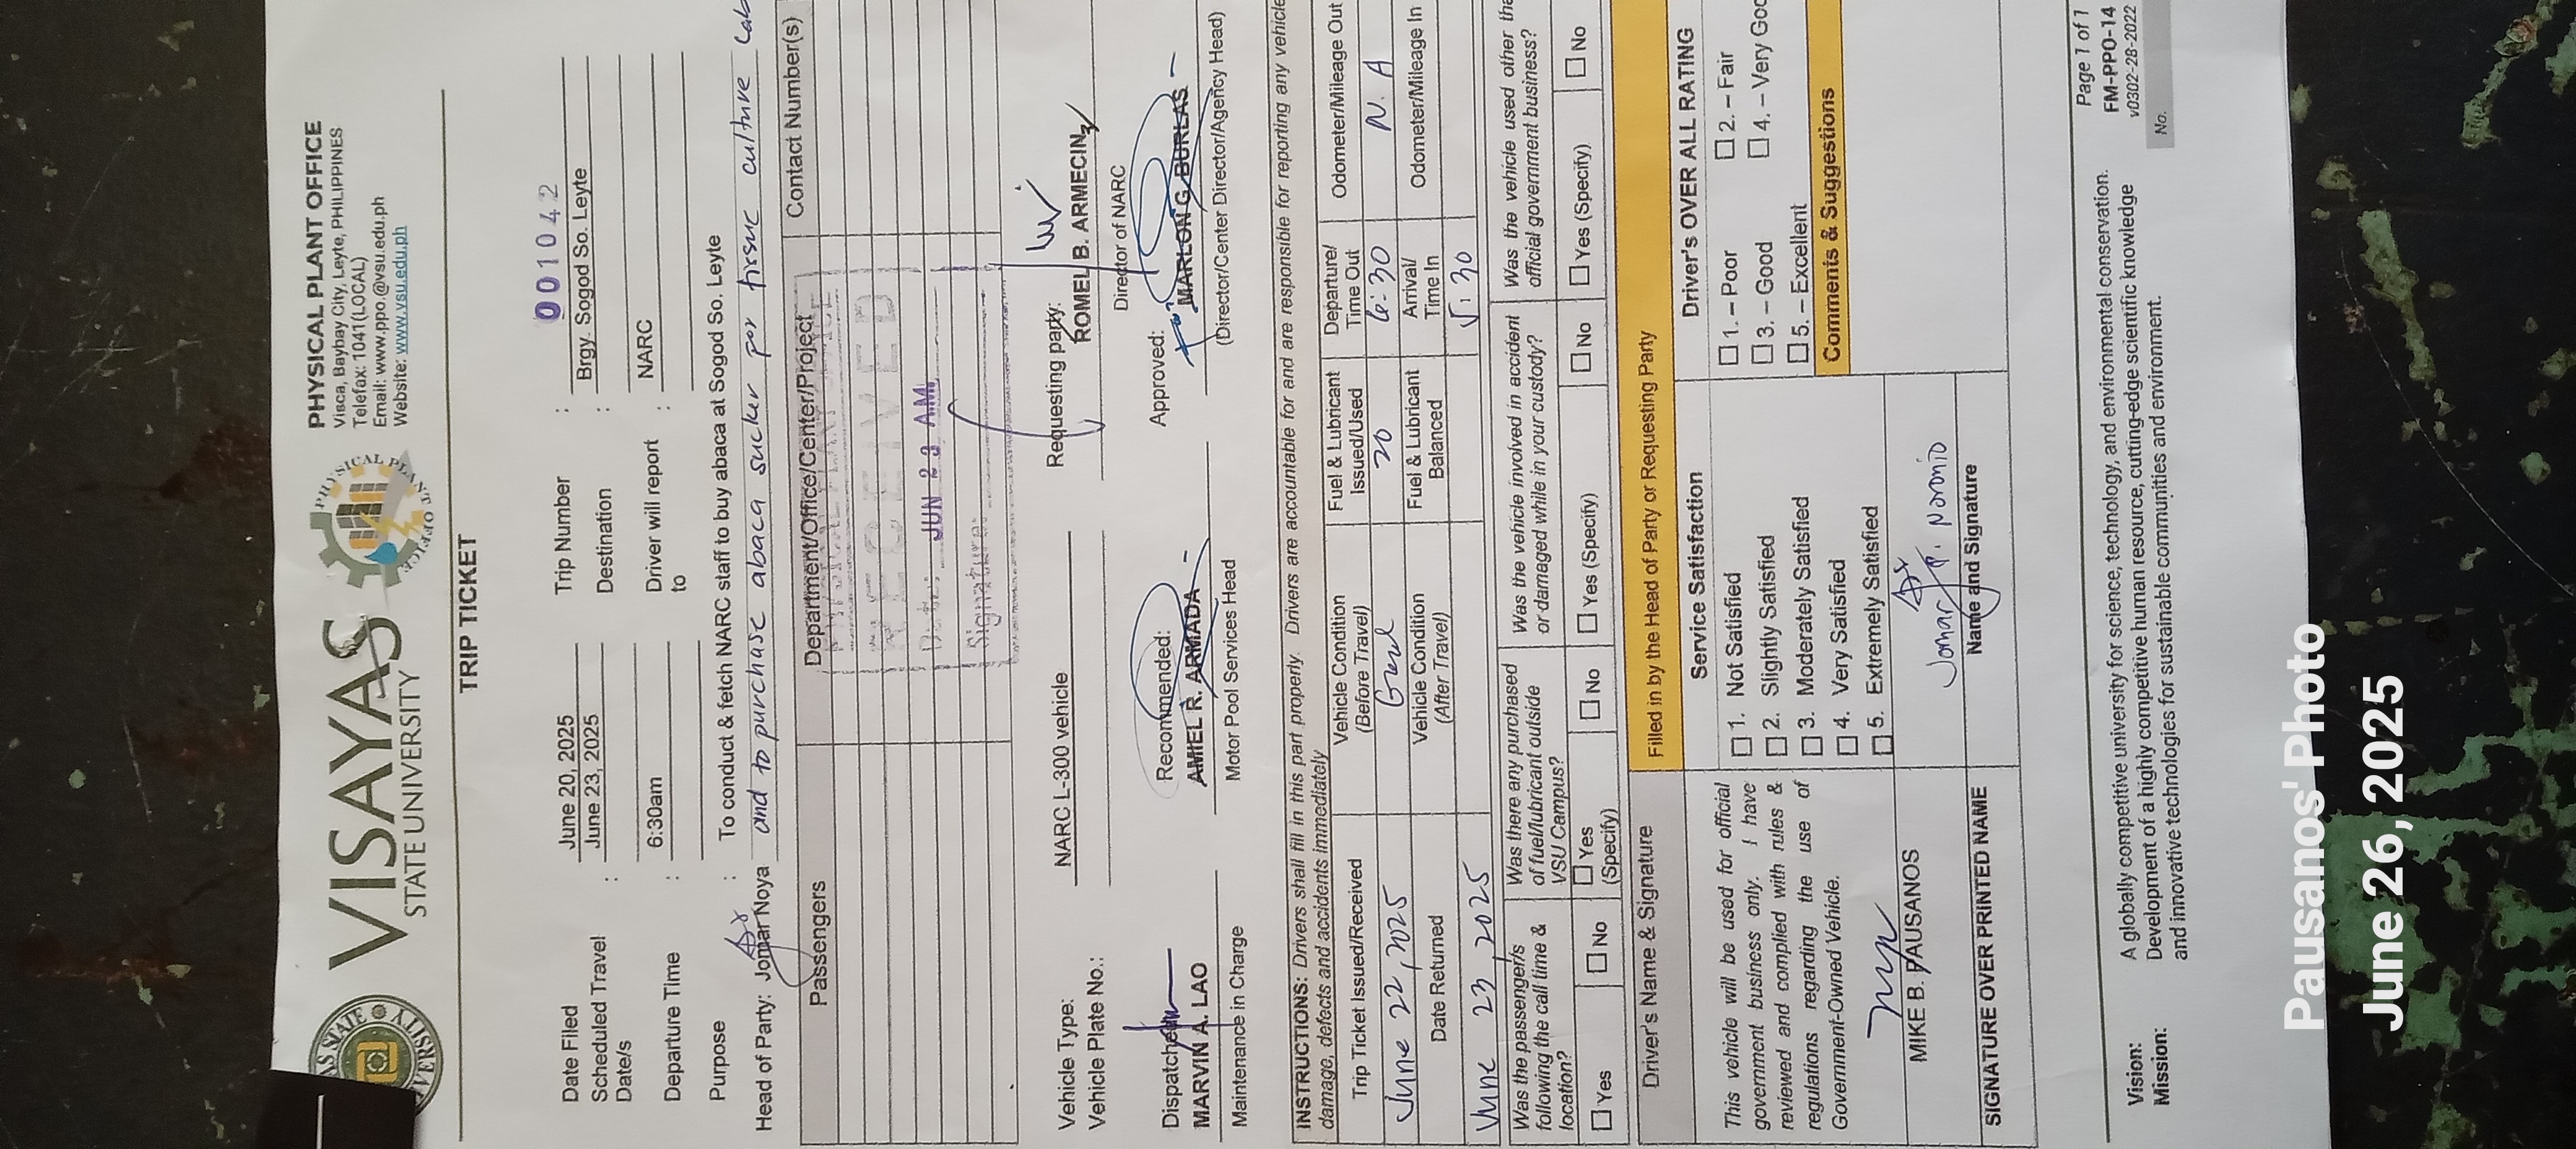 VISAYAS
STATE UNIVERSITY
PHYSICAL PLANT OFFICE
Visca, Baybay City, Leyte, PHILIPPINES
Telefax: 1041(LOCAL)
Email: www.ppo.@vsu.edu.ph
Website: www.vsu.edu.ph
PHYSICAL PLANT OFFICE
TRIP TICKET
Date Filed : June 20, 2025 Trip Number : 001042
Scheduled Travel Date/s : June 23, 2025 Destination : Brgy. Sogod So. Leyte
Departure Time : 6:30am Driver will report to : NARC
Purpose : To conduct & fetch NARC staff to buy abaca at Sogod So. Leyte
Head of Party: Jomar Noya and to purchase abaca sucker por tissue culture Lab
Passengers Department/Office/Center/Project Contact Number(s)
RECEIVED
Date: JUN 23 AM
Signature:
Vehicle Type: NARC L-300 vehicle Requesting party:
Vehicle Plate No.: ROMEL B. ARMECIN
Director of NARC
Dispatcher: Recommended: Approved:
MARVIN A. LAO AMIEL R. ARMADA MARLON G. BURLAS
Maintenance in Charge Motor Pool Services Head (Director/Center Director/Agency Head)
INSTRUCTIONS: Drivers shall fill in this part properly. Drivers are accountable for and are responsible for reporting any vehicle
damage, defects and accidents immediately
Trip Ticket Issued/Received Vehicle Condition (Before Travel) Fuel & Lubricant Issued/Used Departure/ Time Out Odometer/Mileage Out
June 22, 2025 Good 20 6:30 N. A
Date Returned Vehicle Condition (After Travel) Fuel & Lubricant Balanced Arrival/ Time In Odometer/Mileage In
June 23, 2025 5:30
Was the passenger/s following the call time & location?
Yes No
Was there any purchased of fuel/lubricant outside VSU Campus?
Yes (Specify) No
Was the vehicle involved in accident or damaged while in your custody?
Yes (Specify) No
Was the vehicle used other the official government business?
Yes (Specify) No
Driver's Name & Signature
Filled in by the Head of Party or Requesting Party
This vehicle will be used for official
government business only. I have
reviewed and complied with rules &
regulations regarding the use of
Government-Owned Vehicle.
MIKE B. PAUSANOS
SIGNATURE OVER PRINTED NAME
Service Satisfaction
1. Not Satisfied
2. Slightly Satisfied
3. Moderately Satisfied
4. Very Satisfied
5. Extremely Satisfied
Jomar
Name and Signature
Driver's OVER ALL RATING
1. – Poor 2. – Fair
3. – Good 4. – Very Goo
5. – Excellent
Comments & Suggestions
Vision: A globally competitive university for science, technology, and environmental conservation.
Mission: Development of a highly competitive human resource, cutting-edge scientific knowledge
and innovative technologies for sustainable communities and environment.
Page 1 of 1
FM-PPO-14
v0302-28-2022
No.
Pausanos' Photo
June 26, 2025